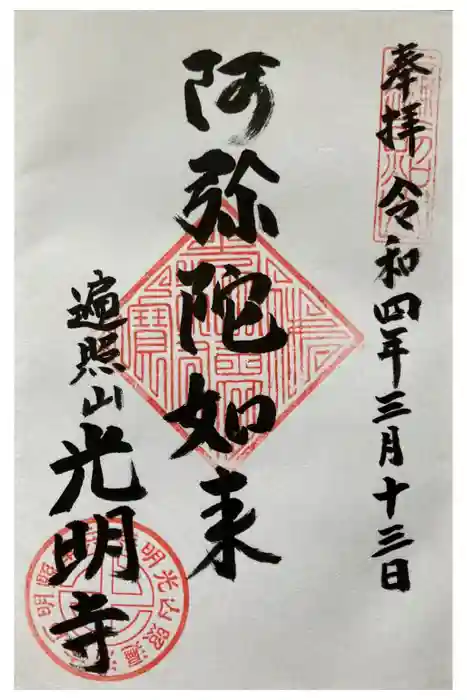 奉拝 令和四年三月十三日
阿弥陀如来
遍照山
光明寺